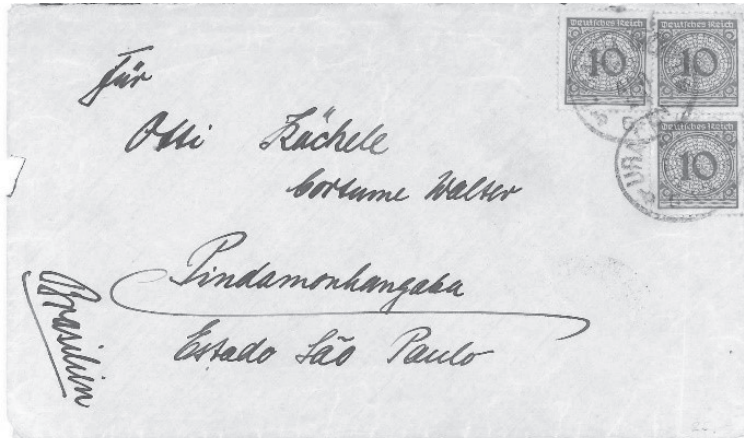 Deutsches Reich
10
Deutsches Reich
10
Deutsches Reich
10
URACH
Für
Otti Kächele
Cortume Walter
Pindamonhangaba
Estado São Paulo
Brasilien